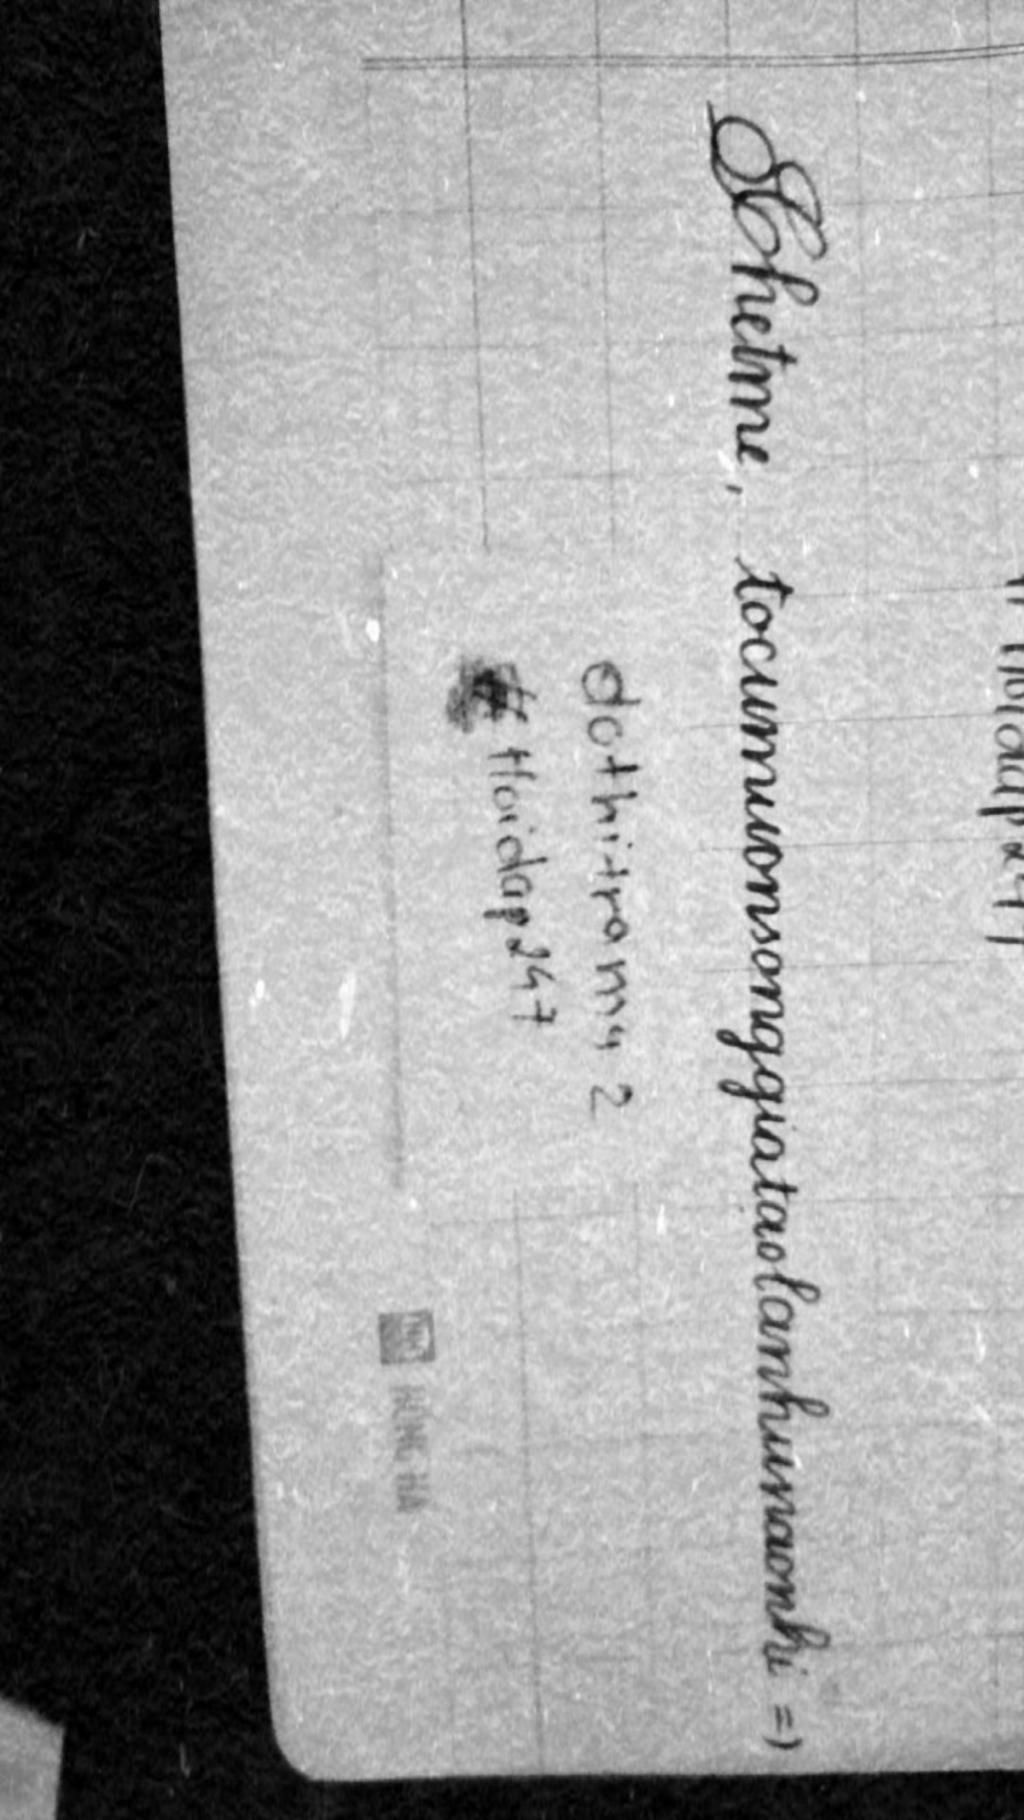 Hoidap247
Chetme, tocumuonsonggiataolanhunaonhi =)
dothitramy 2
# Hoidap247
HONG HA